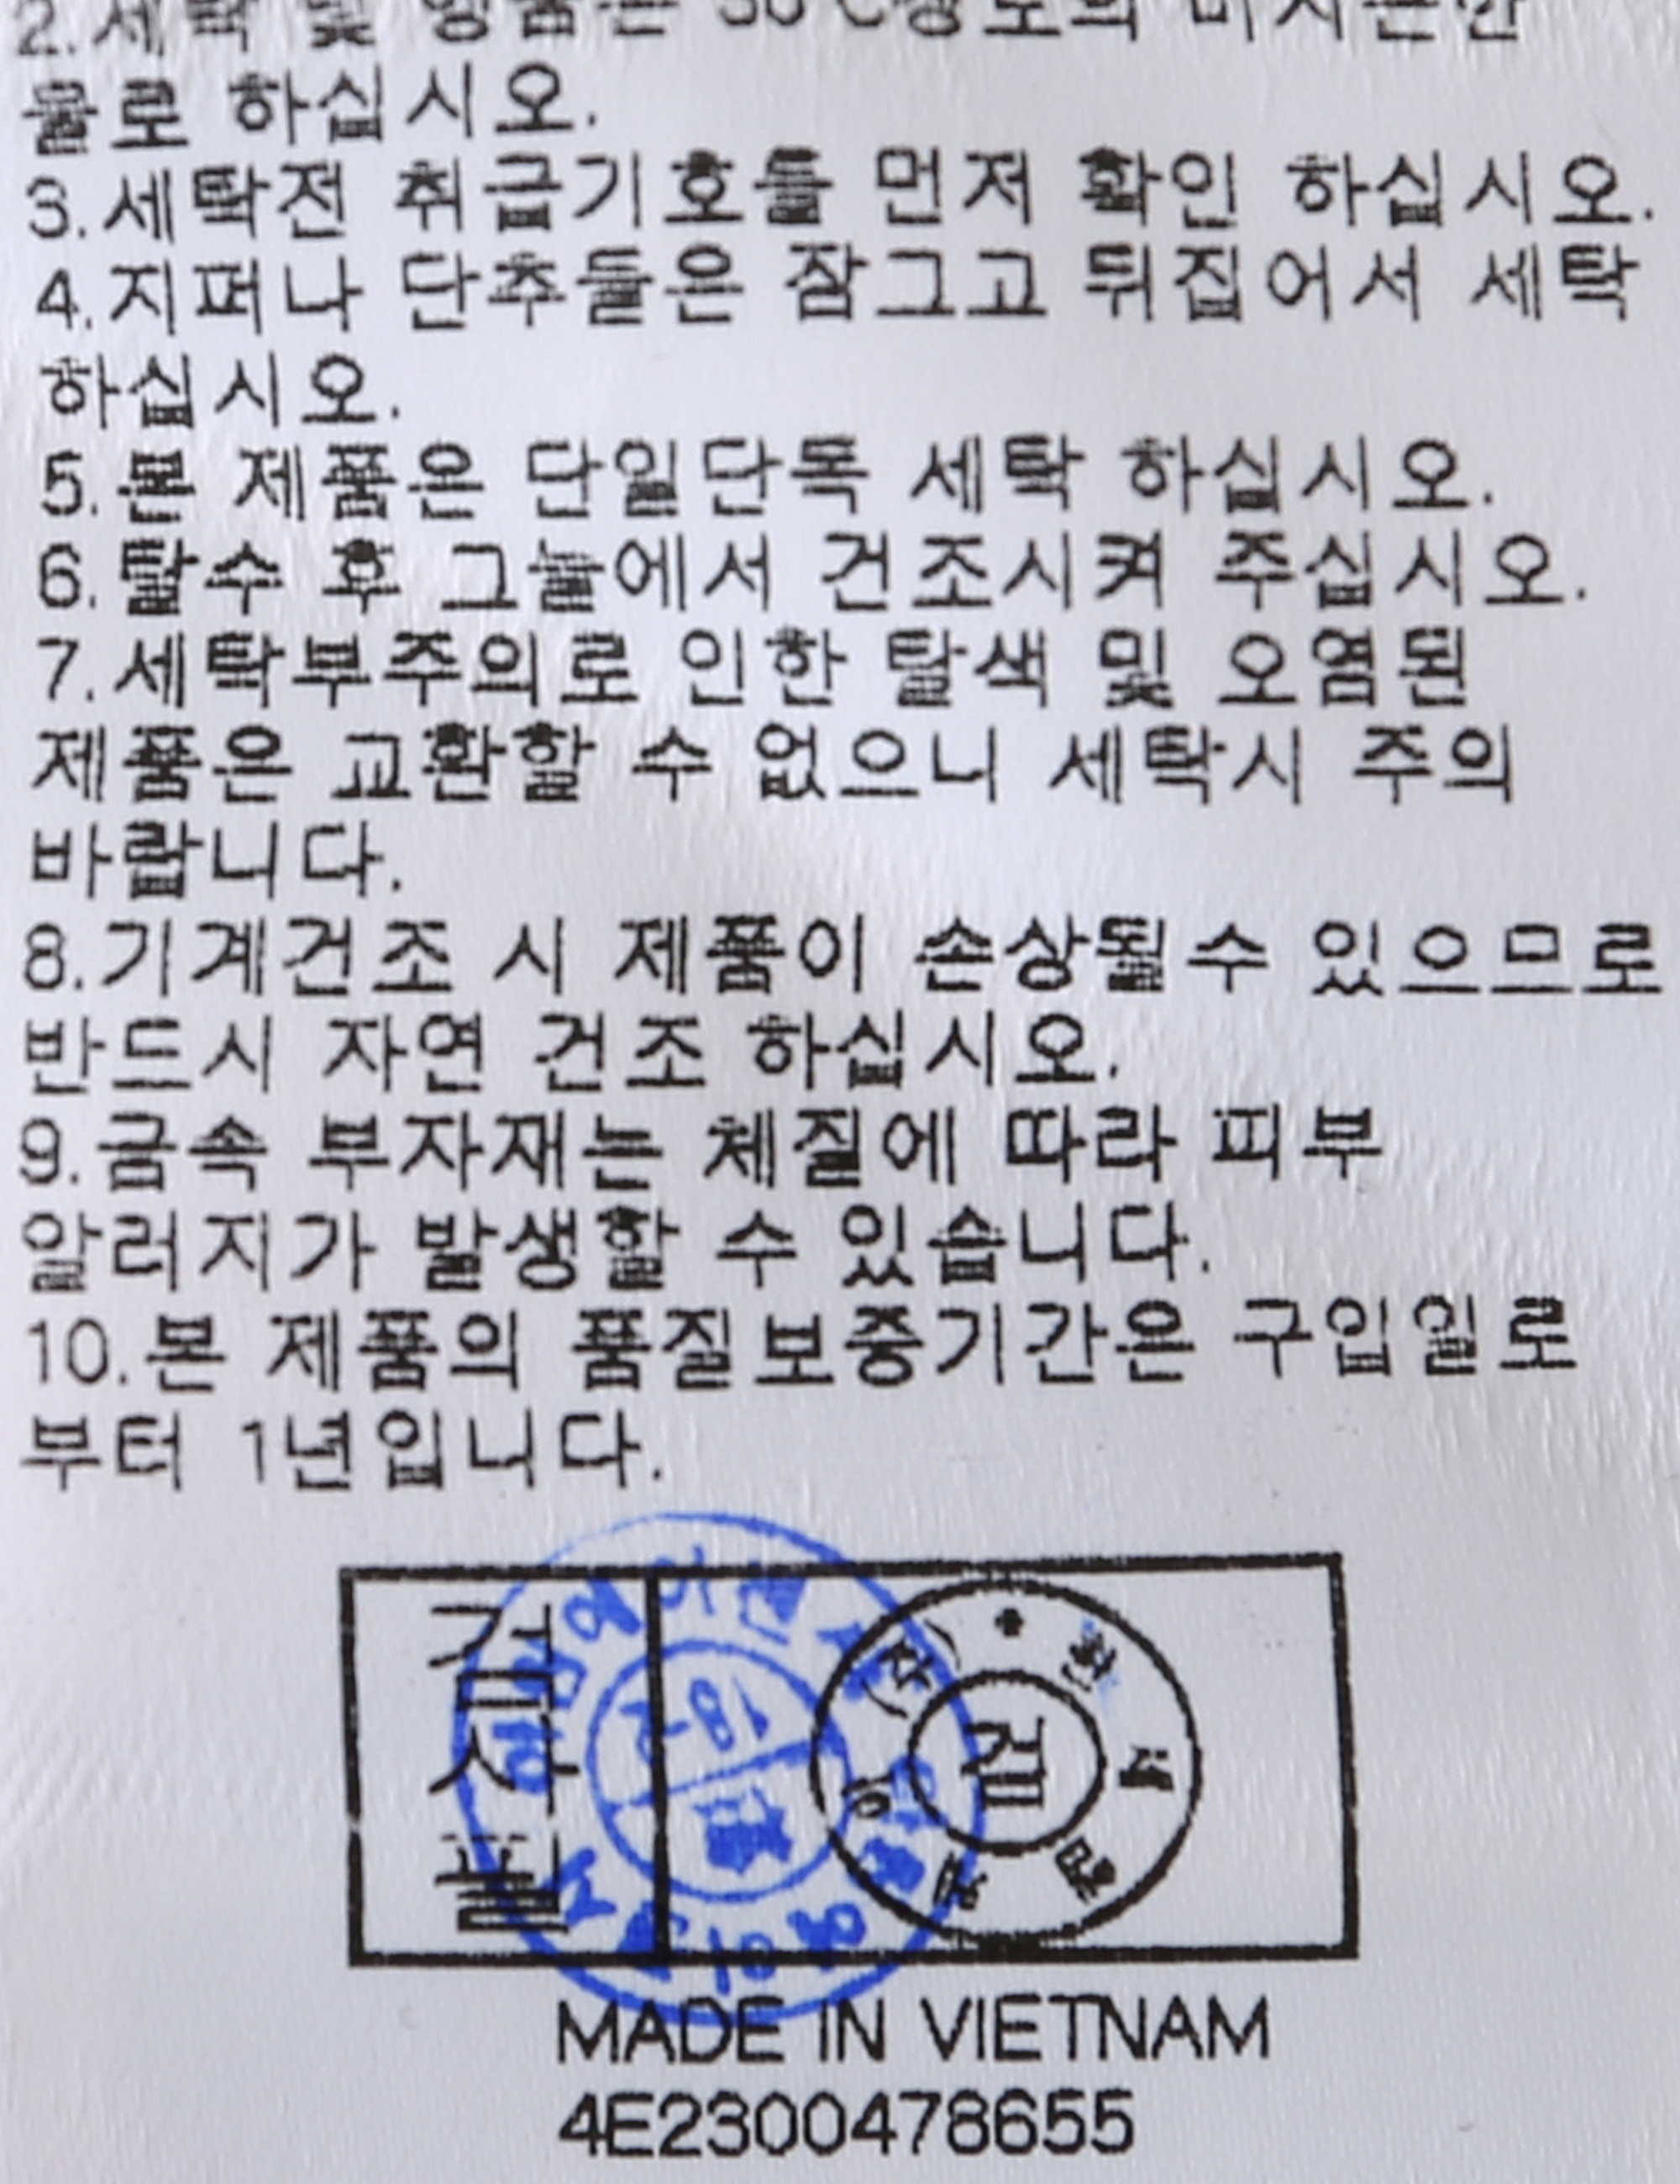 2.세탁 및 헹굼은 30℃정도의 미지근한
물로 하십시오.
3.세탁전 취급기호를 먼저 확인 하십시오.
4.지퍼나 단추들은 잠그고 뒤집어서 세탁
하십시오.
5.본 제품은 단일단독 세탁 하십시오.
6.탈수 후 그늘에서 건조시켜 주십시오.
7.세탁부주의로 인한 탈색 및 오염된
제품은 교환할 수 없으니 세탁시 주의
바랍니다.
8.기계건조 시 제품이 손상될수 있으므로
반드시 자연 건조 하십시오.
9.금속 부자재는 체질에 따라 피부
알러지가 발생할 수 있습니다.
10.본 제품의 품질보증기간은 구입일로
부터 1년입니다.
검사필
검
MADE IN VIETNAM
4E2300478655